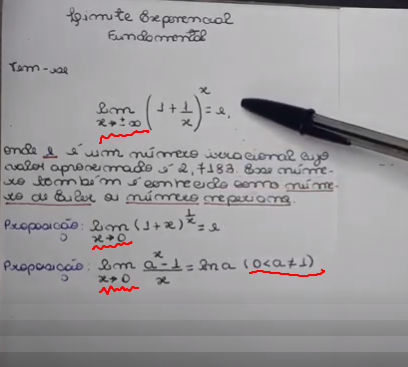 Limite Exponencial
Fundamental
Tem-se
lim x→±∞ (1 + 1/x)^x = e,
onde e é um número irracional cujo
valor aproximado é 2,7183. Esse núme-
ro também é conhecido como núme-
ro de Euler ou número neperiano.
Proposição: lim x→0 (1+x)^(1/x) = e
Proposição: lim x→0 (a^x - 1)/x = ln a (0<a≠1)